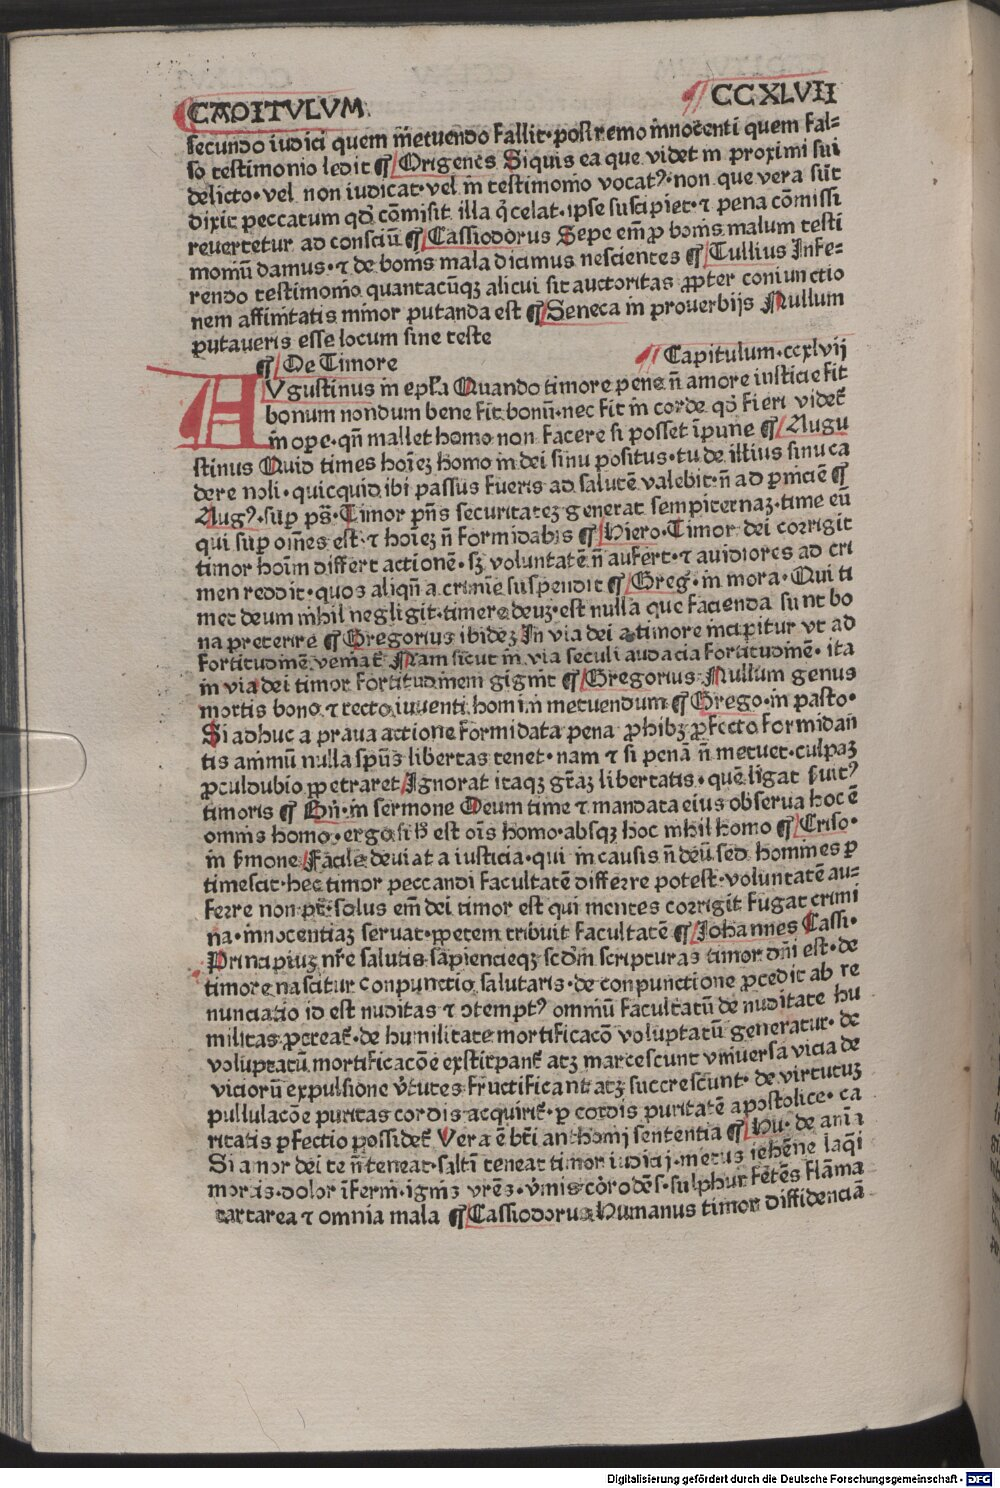 CAPITVLVM CCXLVII
secundo iudici quem m̄etuendo fallit· postremo īnnocenti quem fal=
so testimonio ledit ¶ Origenes Siquis ea que videt in proximi sui
delicto· vel non iudicat· vel in testimonio vocatꝰ· non que vera sūt
dixit peccatum qd̄ cōmisit illa q̄ celat· ipse suscipiet· ⁊ pena cōmissi
revertetur ad consciū ¶ Cassiodorus Sepe em̄ ꝓ bonis malum testi
moniū damus· ⁊ de bonis mala dicimus nescientes ¶ Tullius Infe=
rendo testimonio quantacūqꝫ alicui sit auctoritas ꝓpter coniunctio
nem affinitatis minor putanda est ¶ Seneca in proverbijs Nullum
putaveris esse locum sine teste
¶ De Timore ¶ Capitulum· ccxlvij
AVgustinus in ep̄la Quando timore pene n̄ amore iusticie fit
bonum nondum bene fit bonū· nec fit in corde qd̄ fieri videt̄
in ope· qn̄ mallet homo non facere si posset īpune ¶ Augu
stinus Quid times hoīeꝫ homo in dei sinu positus· tu de illius sinu ca
dere noli· quicquid ibi passus fueris ad salutē valebit· n̄ ad ꝑniciē ¶
Augꝰ· suꝑ ps̄· Timor pn̄s securitateꝫ generat sempiternaꝫ· time eū
qui suꝑ om̄es est· ⁊ hoīeꝫ n̄ formidabis ¶ Hiero· Timor dei corrigit
timor hoīm differt actionē· sꝫ voluntatē n̄ aufert· ⁊ avidiores ad cri
men reddit· quos aliqn̄ a crimīe suspendit ¶ Greg· in mora· Qui ti
met deum nihil negligit· timere deuꝫ· est nulla que facienda sunt bo
na preterire ¶ Gregorius ibideꝫ In via dei a timore incipitur vt ad
fortitudinē veniat̄ Nam sicut in via seculi audacia fortitudinē· ita
in via dei timor fortitudinem gignit ¶ Gregorius Nullum genus
mortis bono ⁊ recto iuventi homini metuendum ¶ Grego· in pasto·
Si adhuc a prava actione formidata pena ꝓhibꝫ ꝓfecto formidan
tis animū nulla spūs libertas tenet· nam ⁊ si penā n̄ metuet· culpaꝫ
ꝓculdubio ꝑpetraret Ignorat itaqꝫ gr̄aꝫ libertatis· quē ligat ſuitꝰ
timoris ¶ Bn̄· in sermone Deum time ⁊ mandata eius observa hoc ē
omnis homo· ergo si h̄ est oīs homo· absqꝫ hoc nihil homo ¶ Criso·
in ẜmone Facile deviat a iusticia· qui in causis n̄ deū sed homines ꝑ
timescit· hec timor peccandi facultatē differre potest· voluntatē au=
ferre non pt̄· solus em̄ dei timor est qui mentes corrigit fugat crimi
na· innocentiaꝫ servat· ꝑpetem tribuit facultatē ¶ Johannes Cassi·
Principiuꝫ nr̄e salutis sapiencieqꝫ scd̄m scripturas timor dn̄i est· de
timore nascitur conpunctio salutaris· de conpunctione ꝓcedit ab re
nunciatio id est nuditas ⁊ ɔtemptꝰ omniū facultatū de nuditate hu
militas ꝓcreat̄· de humilitate mortificacō voluptatū generatur· de
voluptatū mortificacōe exstirpant̄ atqꝫ marcescunt universa vicia de
viciorū expulsione v̄tutes fructificant atqꝫ succrescunt· de virtutuꝫ
pullulacōe puritas cordis acquirit̄· ꝑ cordis puritatē apostolice· ca
ritatis ꝑfectio possidet̄ Vera ē bt̄i anthonij sententia ¶ Hu· de anīa
Si amor dei te n̄ teneat· saltī teneat timor iudicij· metus iehēne laq̄i
mortis· dolor īferni· ignis vrēs· v̄mis cōrodēs· sulphur fetēs flāma
tartarea ⁊ omnia mala ¶ Cassiodorus Humanus timor diffidenciā
Digitalisierung gefördert durch die Deutsche Forschungsgemeinschaft - DFG